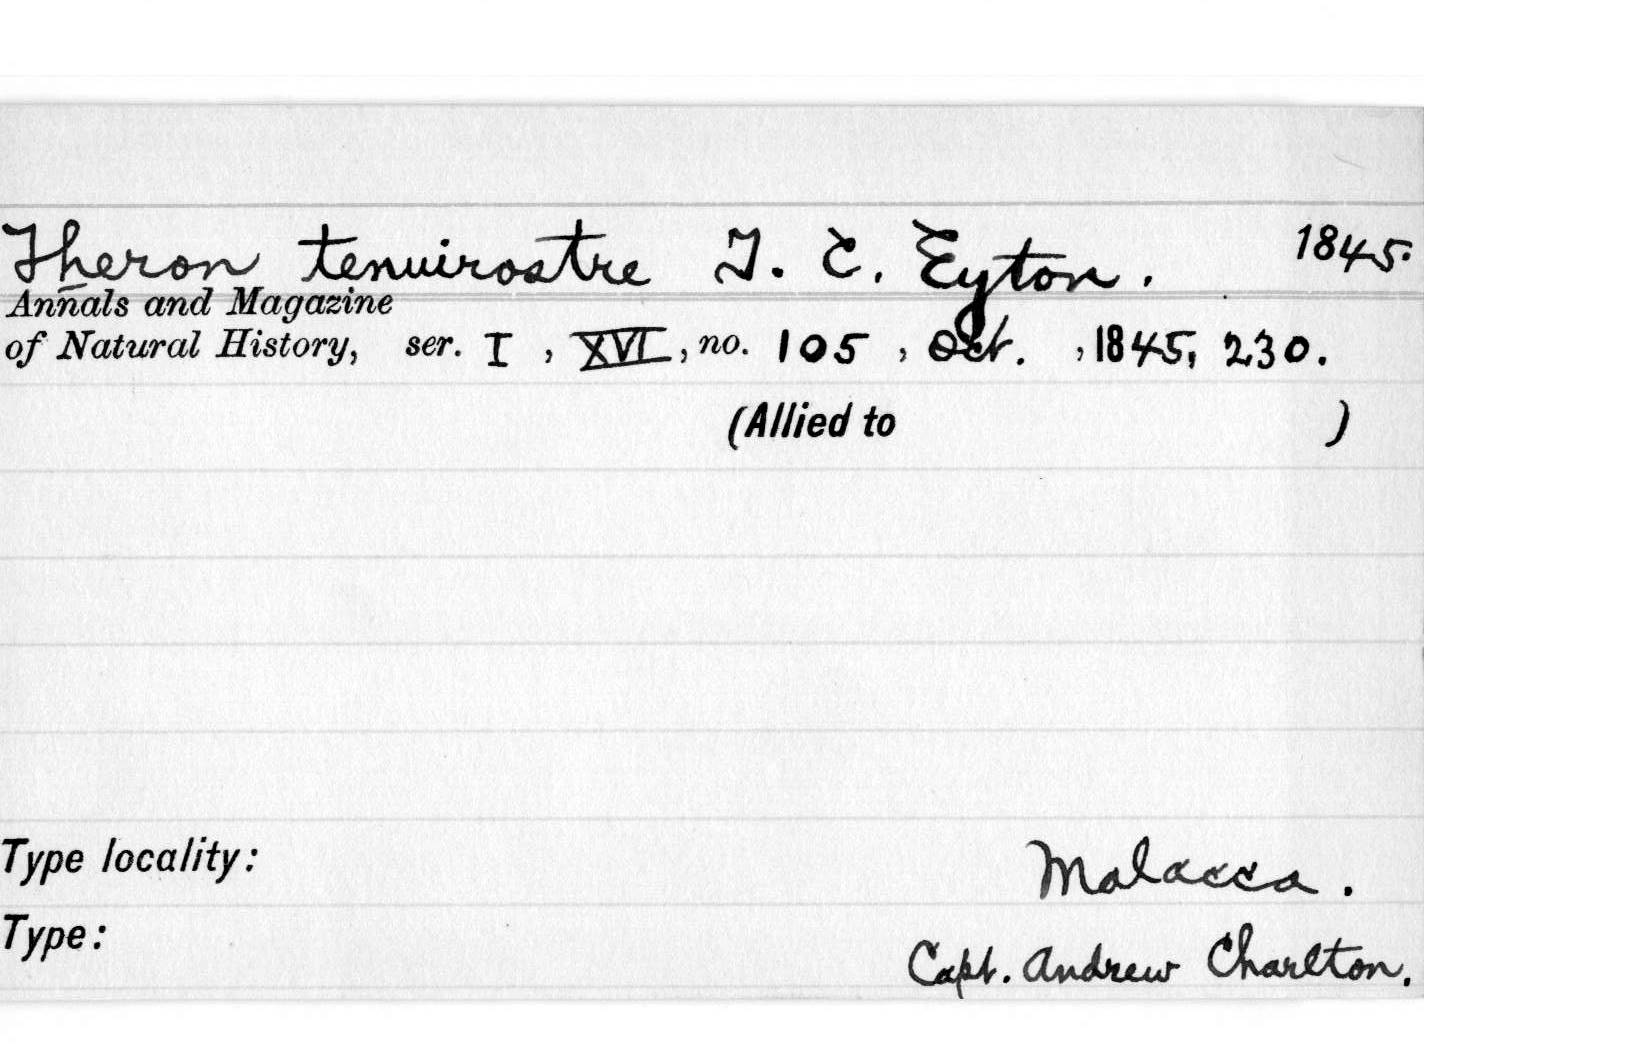 Theron tenuirostre T. C. Eyton. 1845.
Annals and Magazine
of Natural History, ser. I , XVI, no. 105 , Oct. , 1845, 230.
(Allied to )
Type locality: Malacca.
Type: Capt. Andrew Charlton.